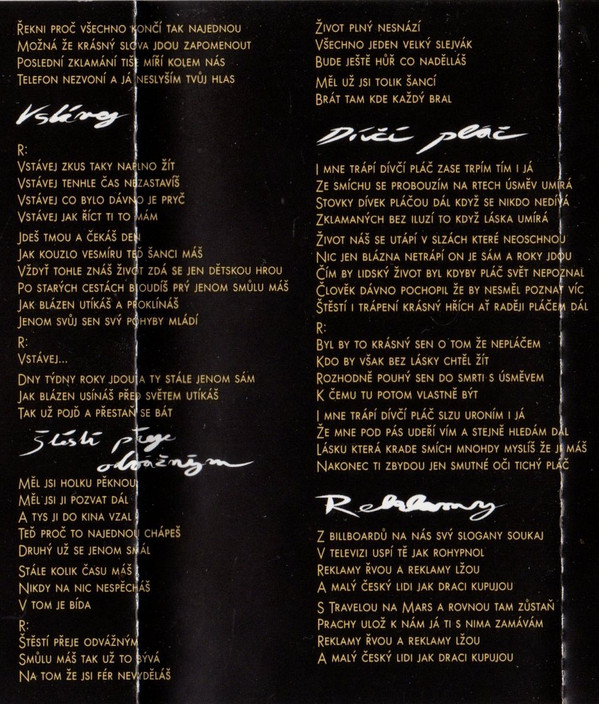 Řekni proč všechno končí tak najednou
Možná že krásný slova jdou zapomenout
Poslední zklamání tiše míří kolem nás
Telefon nezvoní a já neslyším tvůj hlas
Vstávej
R:
Vstávej zkus taky naplno žít
Vstávej tenhle čas nezastavíš
Vstávej co bylo dávno je pryč
Vstávej jak říct ti to mám
Jdeš tmou a čekáš den
Jak kouzlo vesmíru teď šanci máš
Vždyť tohle znáš život zdá se jen dětskou hrou
Po starých cestách bloudíš prý jenom smůlu máš
Jak blázen utíkáš a proklínáš
Jenom svůj sen svý pohyby mládí
R:
Vstávej...
Dny týdny roky jdou a ty stále jenom sám
Jak blázen usínáš před světem utíkáš
Tak už pojď a přestaň se bát
Štěstí přeje
odvážným
Měl jsi holku pěknou
Měl jsi ji pozvat dál
A tys ji do kina vzal
Teď proč to najednou chápeš
Druhý už se jenom smál
Stále kolik času máš
Nikdy na nic nespěcháš
V tom je bída
R:
Štěstí přeje odvážným
Smůlu máš tak už to bývá
Na tom že jsi fér nevyděláš
Život plný nesnází
Všechno jeden velký slejvák
Bude ještě hůř co naděláš
Měl už jsi tolik šancí
Brát tam kde každý bral
Dívčí pláč
I mne trápí dívčí pláč zase trpím tím i já
Ze smíchu se probouzím na rtech úsměv umírá
Stovky dívek pláčou dál když se nikdo nedívá
Zklamaných bez iluzí to když láska umírá
Život náš se utápí v slzách které neoschnou
Nic jen blázna netrápí on je sám a roky jdou
Čím by lidský život byl kdyby pláč svět nepoznal
Člověk dávno pochopil že by nesměl poznat víc
Štěstí i trápení krásný hřích ať raději pláčem dál
R:
Byl by to krásný sen o tom že nepláčem
Kdo by však bez lásky chtěl žít
Rozhodně pouhý sen do smrti s úsměvem
K čemu tu potom vlastně být
I mne trápí dívčí pláč slzu uroním i já
Že mne pod pás udeří vím a stejně hledám dál
Lásku která krade smích mnohdy myslíš že ji máš
Nakonec ti zbydou jen smutné oči tichý pláč
Reklamy
Z billboardů na nás svý slogany soukaj
V televizi uspí tě jak rohypnol
Reklamy řvou a reklamy lžou
A malý český lidi jak draci kupujou
S Travelou na Mars a rovnou tam zůstaň
Prachy ulož k nám já ti s nima zamávám
Reklamy řvou a reklamy lžou
A malý český lidi jak draci kupujou